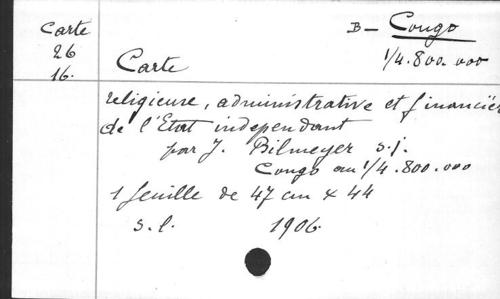 Carte
26
16.
B – Congo
1/4.800.000
Carte
religieuse, administrative et financièr
de l'Etat independant
par J. Bilmeyer s.j.
Congo au 1/4.800.000
1 feuille de 47 cm x 44
s.l. 1906.